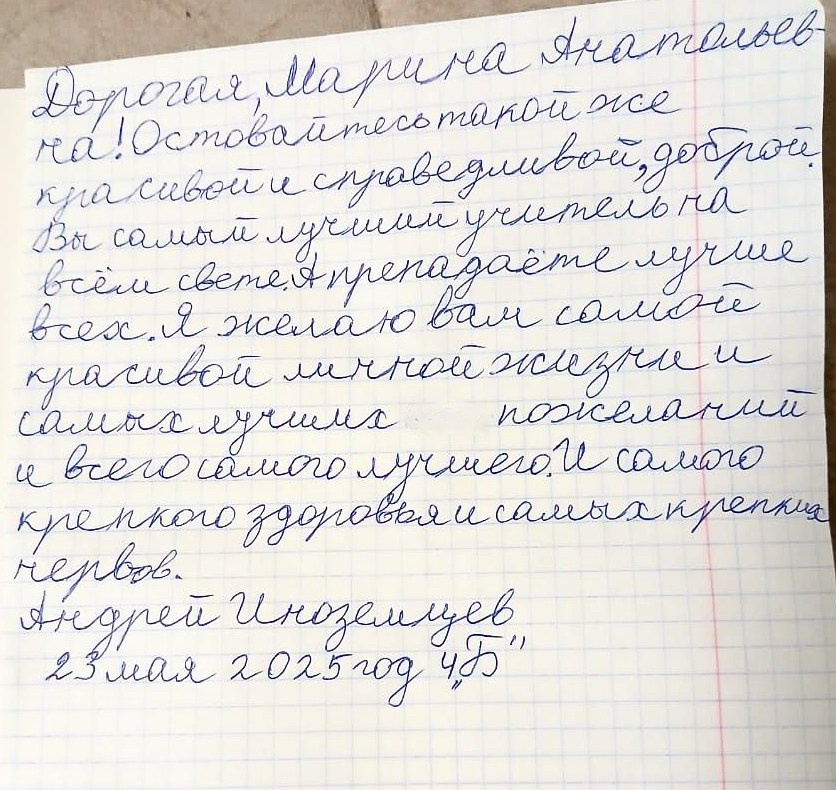 Дорогая, Марина Анатольев-
на! Оставайтесь такой же
красивой и справедливой, доброй.
Вы самый лучший учитель на
всём свете. А препадаёте лучше
всех. Я желаю вам самой
красивой личной жизни и
самых лучших пожеланий
и всего самого лучшего. И самого
крепкого здоровья и самых крепких
нервов.
Андрей Иноземцев
23 мая 2025 год 4 „Б"